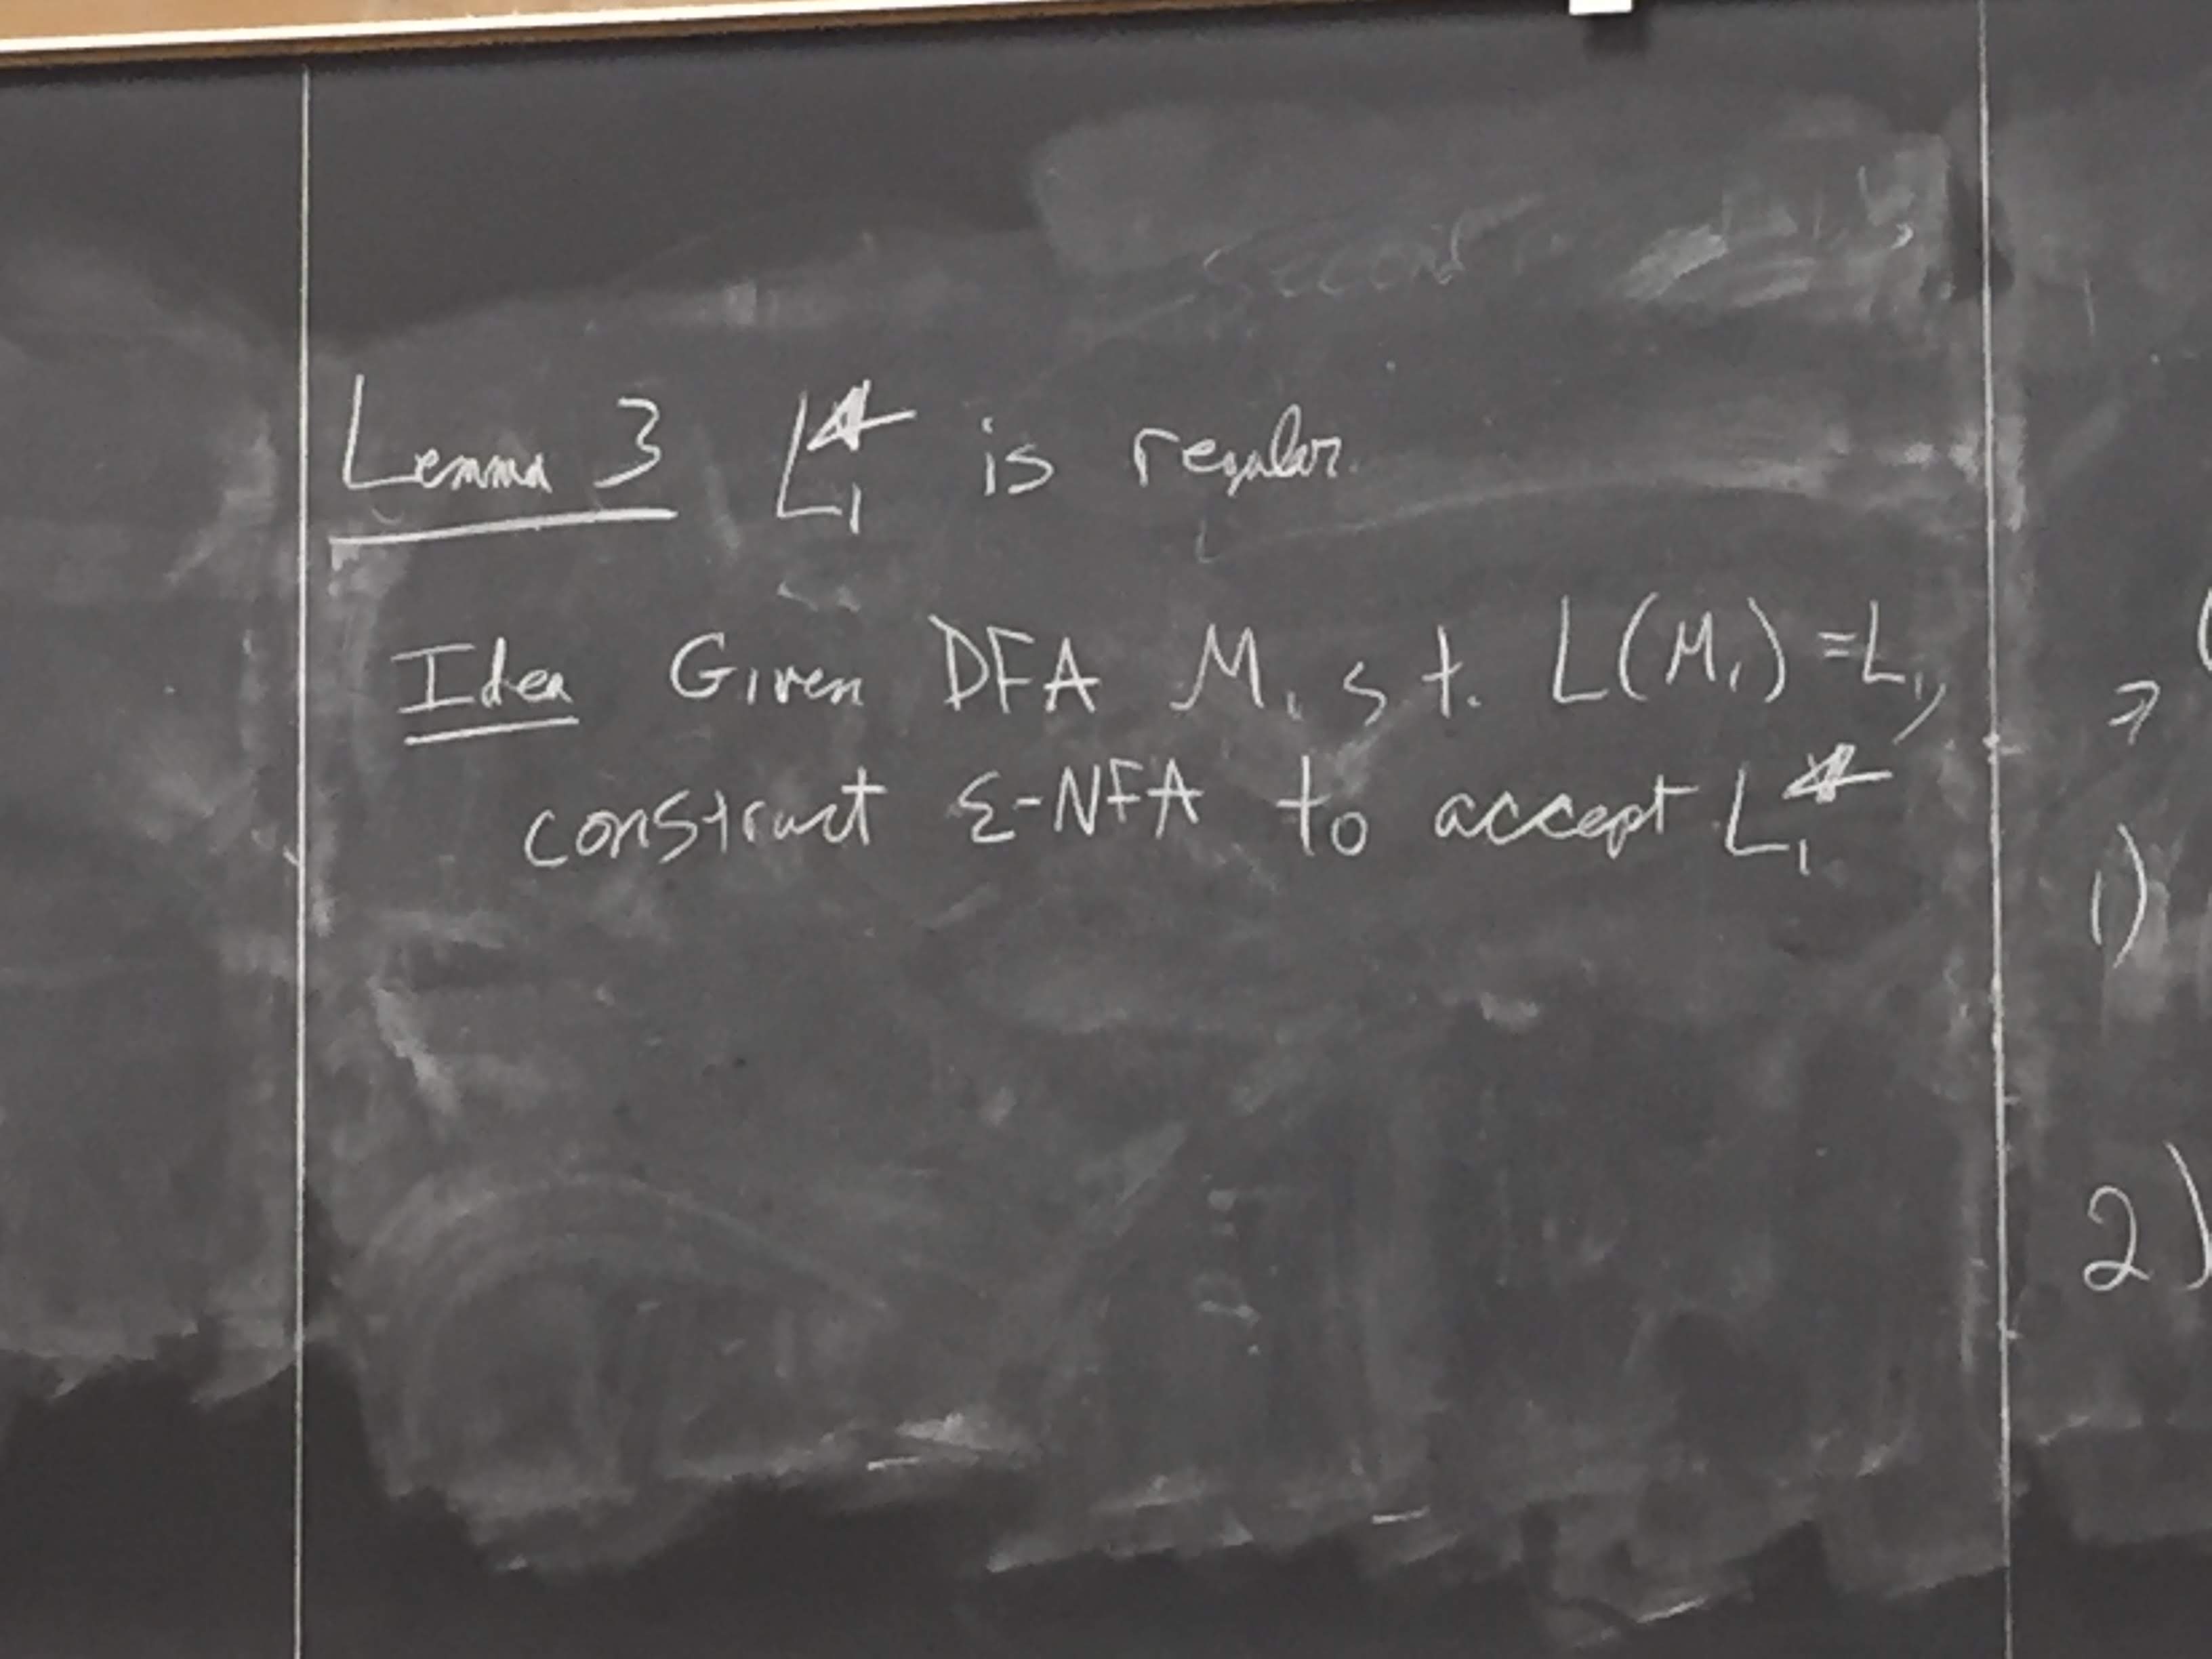 second
Lemma 3 L₁* is regular.
Idea Given DFA M₁ s.t. L(M₁)=L₁,
construct ε-NFA to accept L₁*
1)
2)